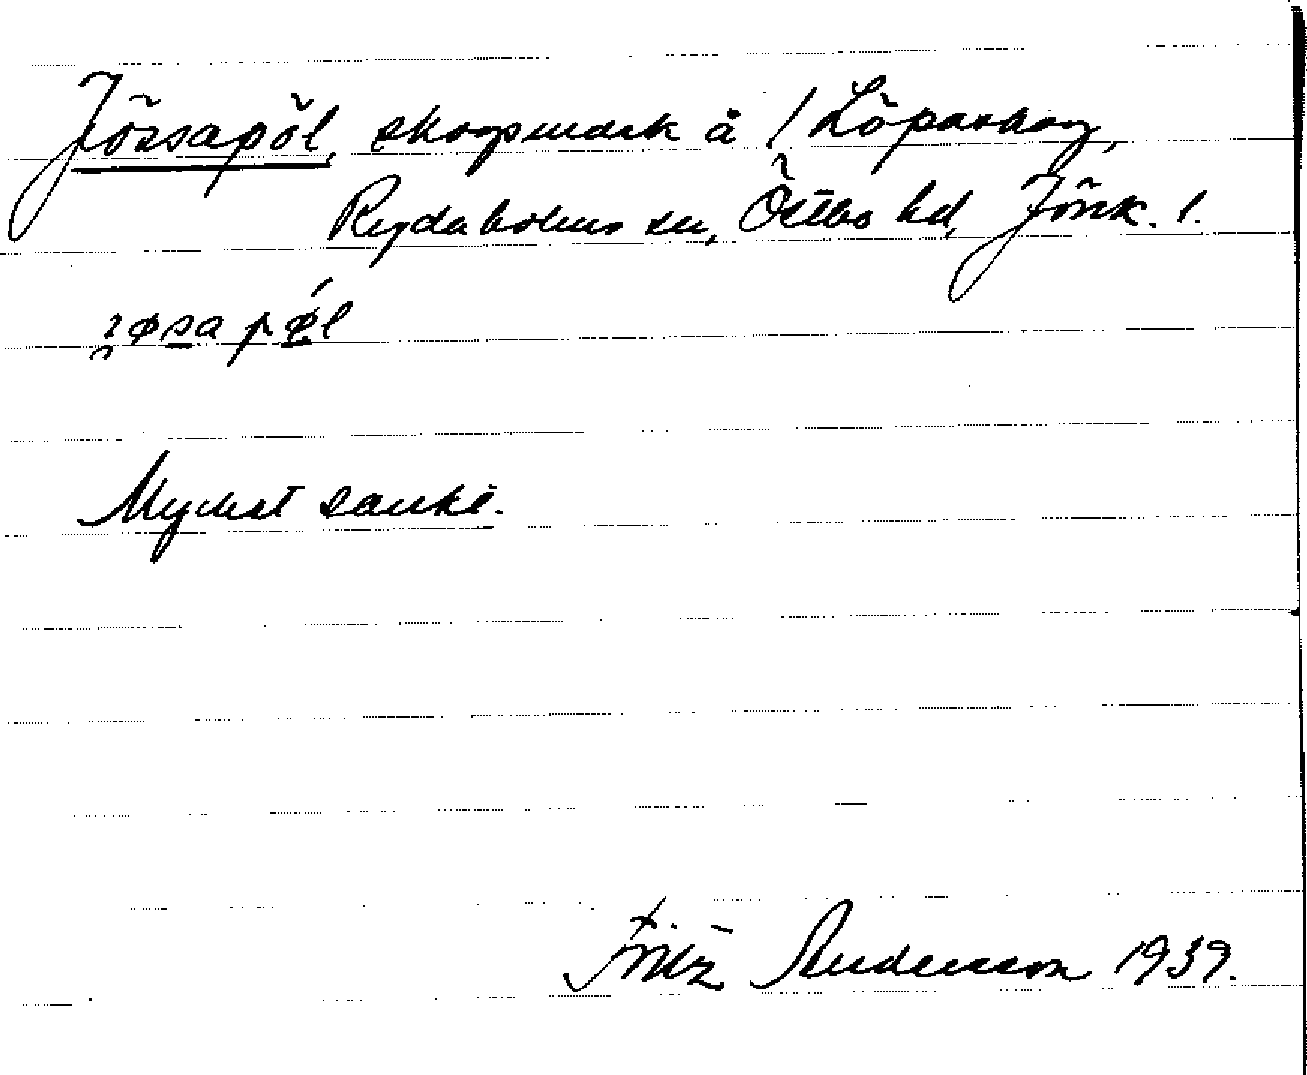 Jössapöl, skogsmark å / Löparskog,
Rydaholms sn, Östbo hd, Jönk. l.
Mycket sankt.
Fritz Andersson 1939.